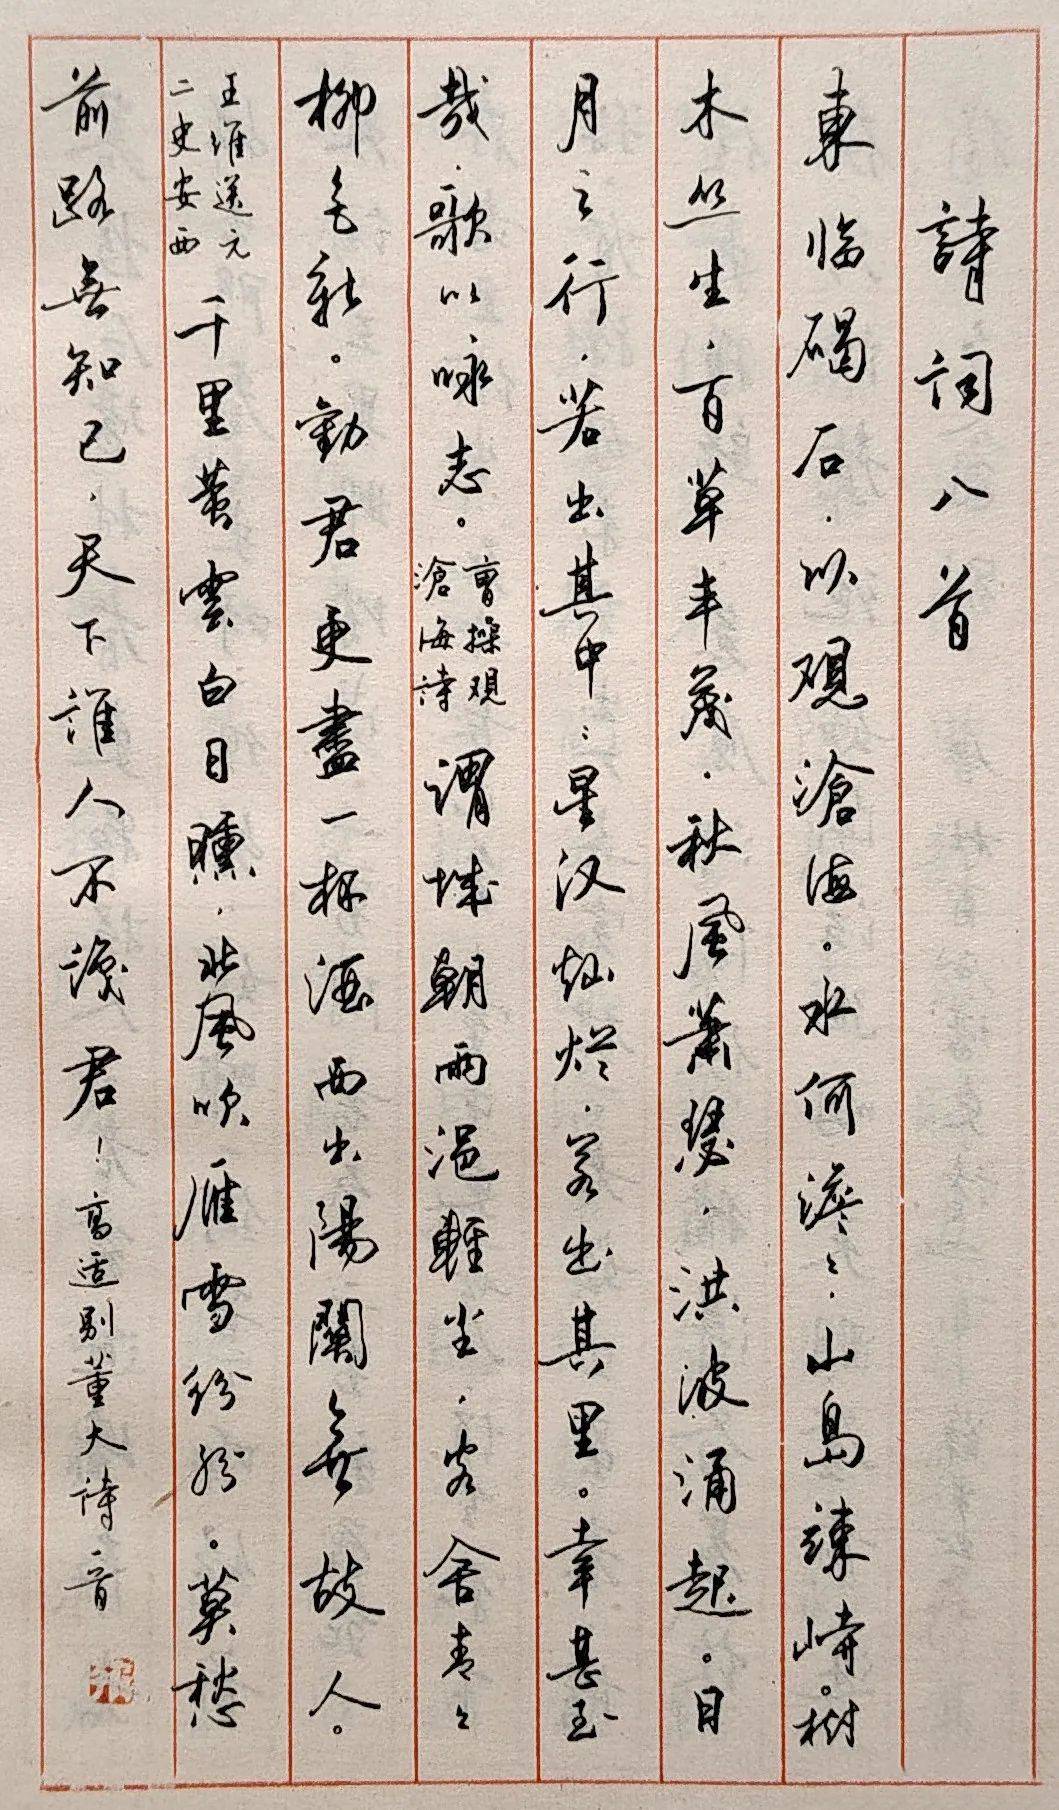 詩詞八首
東临碣石，以观滄海。水何澹々，山島竦峙。樹
木丛生，百草丰茂，秋風萧瑟，洪波涌起。日
月之行，若出其中；星汉灿烂，若出其里。幸甚至
哉，歌以咏志。曹操观滄海詩 渭城朝雨浥輕尘，客舍青々
柳色新。勸君更盡一杯酒西出陽關無故人。
王維送元二史安西 千里黄雲白日曛，北風吹雁雪纷纷。莫愁
前路無知己，天下誰人不識君！高适别董大詩 音